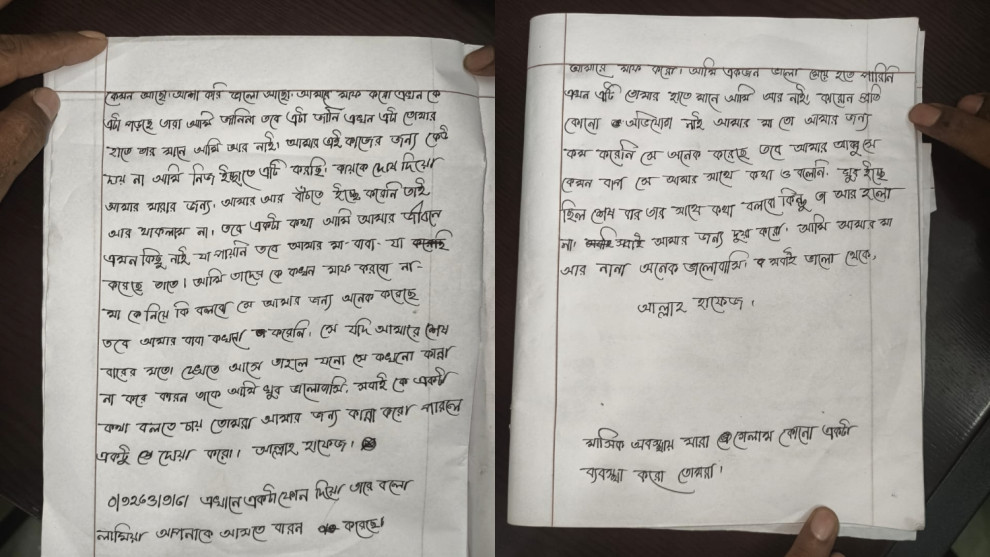 কেমন আছো। আশা করি ভালো আছো। আমারে মাফ করো এখন কে
এটা পড়ছে তারা আমি জানিনা তবে এটা জানি এখন এটা তোমার
হাতে তার মানে আমি আর নাই। আমার এই কাজের জন্য কেউ
দায় না আমি নিজ ইচ্ছাতে এটি করছি। কাকে দোষ দিয়ো
আমার মারার জন্য। আমার আর বাঁচতে ইচ্ছে করেনি তাই
আর থাকলাম না। তবে একটা কথা আমি আমার জীবনে
এমন কিছু নাই যা পায়নি তবে আমার মা-বাবা- যা
করেছে তাতে। আমি তাদের কে কখন মাফ করবো না-
মা কে নিয়ে কি বলবো সে আমার জন্য অনেক করেছে
তবে আমার বাবা কখনো করেনি। সে যদি আমারে শেষ
বারের মতো দেখতে আসে তাহলে যেনো সে কখনো কান্না
না করে কারন তাকে আমি খুব ভালোবাসি। সবাই কে একটা
কথা বলতে চায় তোমরা আমার জন্য কান্না করো পারলে
একটু দোয়া করো। আল্লাহ হাফেজ।
এখানে একটা ফোন দিয়ো তারে বলো
লামিয়া আপনাকে আসতে বারন করেছে।
আমারে মাফ করো। আমি একজন ভালো মেয়ে হতে পারিনি
এখন এটি তোমার হাতে মানে আমি আর নাই। কারোন প্রতি
কোনো অভিযোগ নাই আমার মা তো আমার জন্য
কম করেনি সে অনেক করেছে তবে আমার আব্বু সে
কেমন বাপ সে আমার সাথে কথা ও বলেনি। খুব ইচ্ছে
ছিল শেষ বার তার সাথে কথা বলবো কিন্তু তা আর হলো
না। সবাই আমার জন্য দুয়া করো। আমি আমার মা
আর নানা অনেক ভালোবাসি। সবাই ভালো থেকে,
আল্লাহ হাফেজ।
মাসিক অবস্থায় মারা গেলাম কোনো একটা
ব্যবস্থা করো তোমরা।